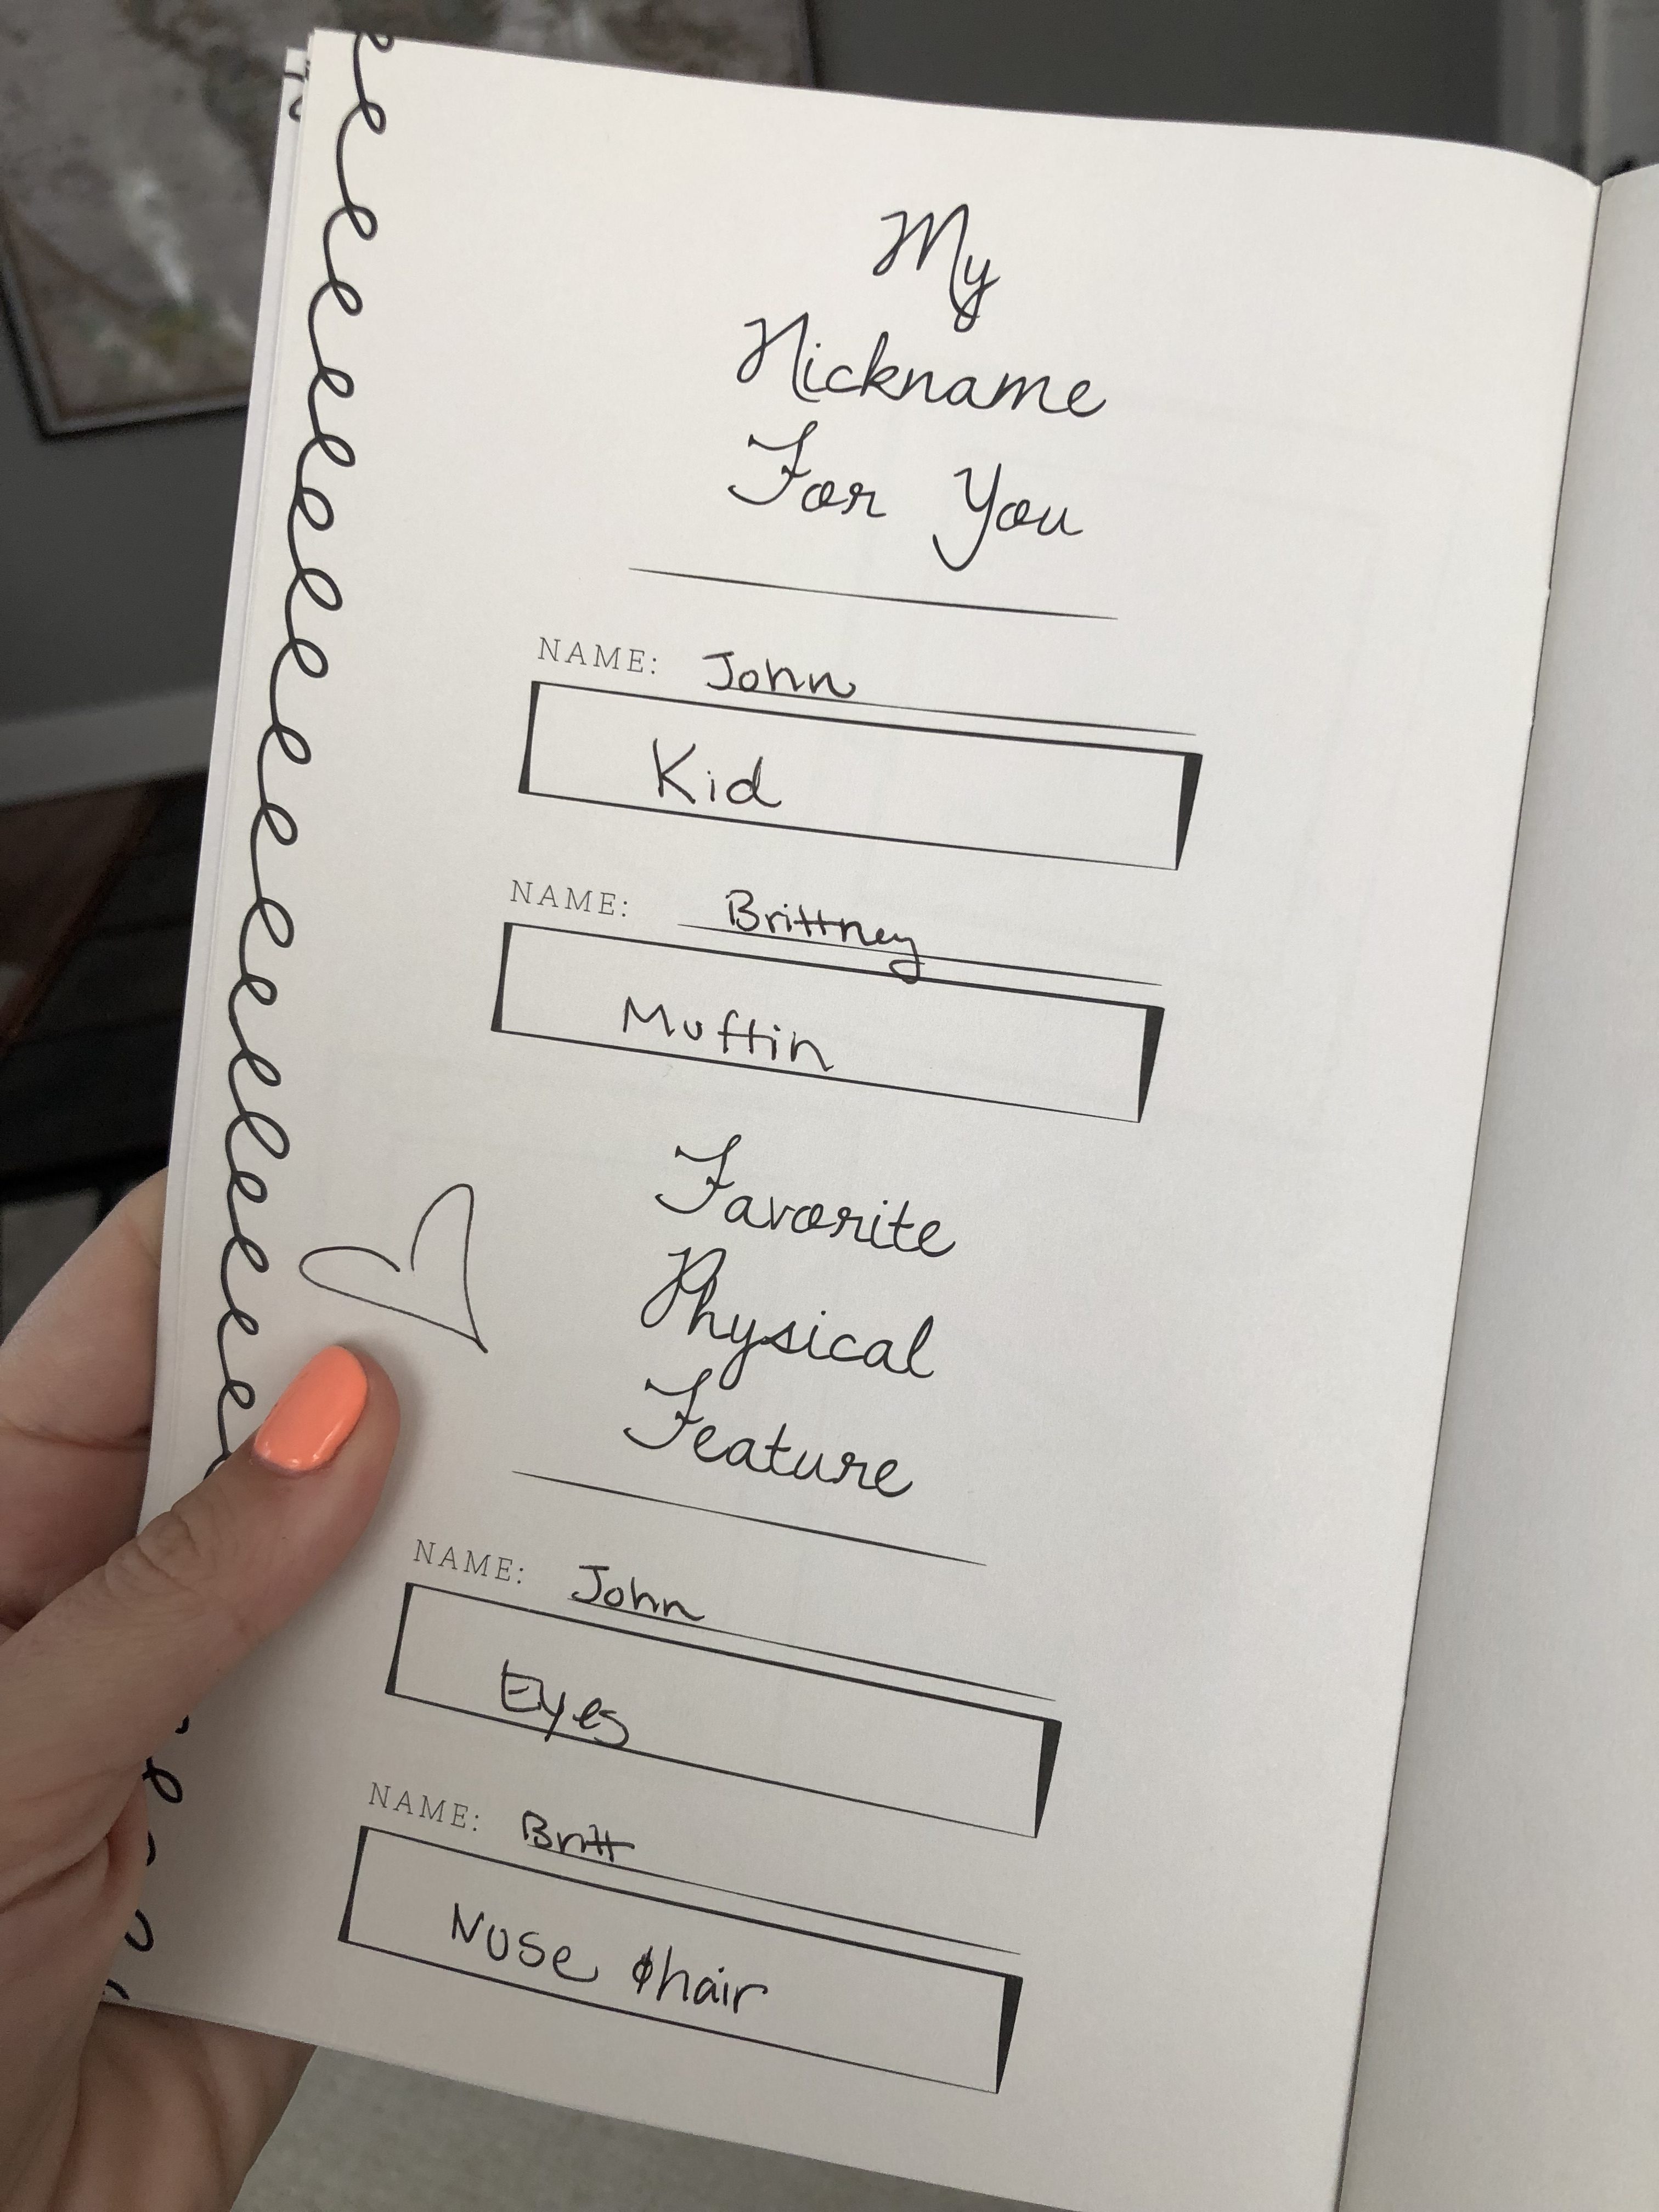 My
Nickname
For You
NAME: John
Kid
NAME: Brittney
Muffin
Favorite
Physical
Feature
NAME: John
Eyes
NAME: Britt
Nose & hair